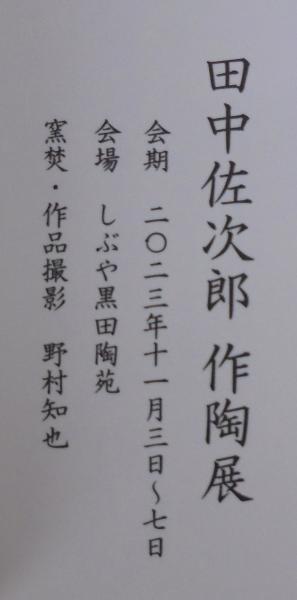 田中佐次郎 作陶展
会期 二〇二三年十一月三日〜七日
会場 しぶや黒田陶苑
窯焚・作品撮影 野村知也